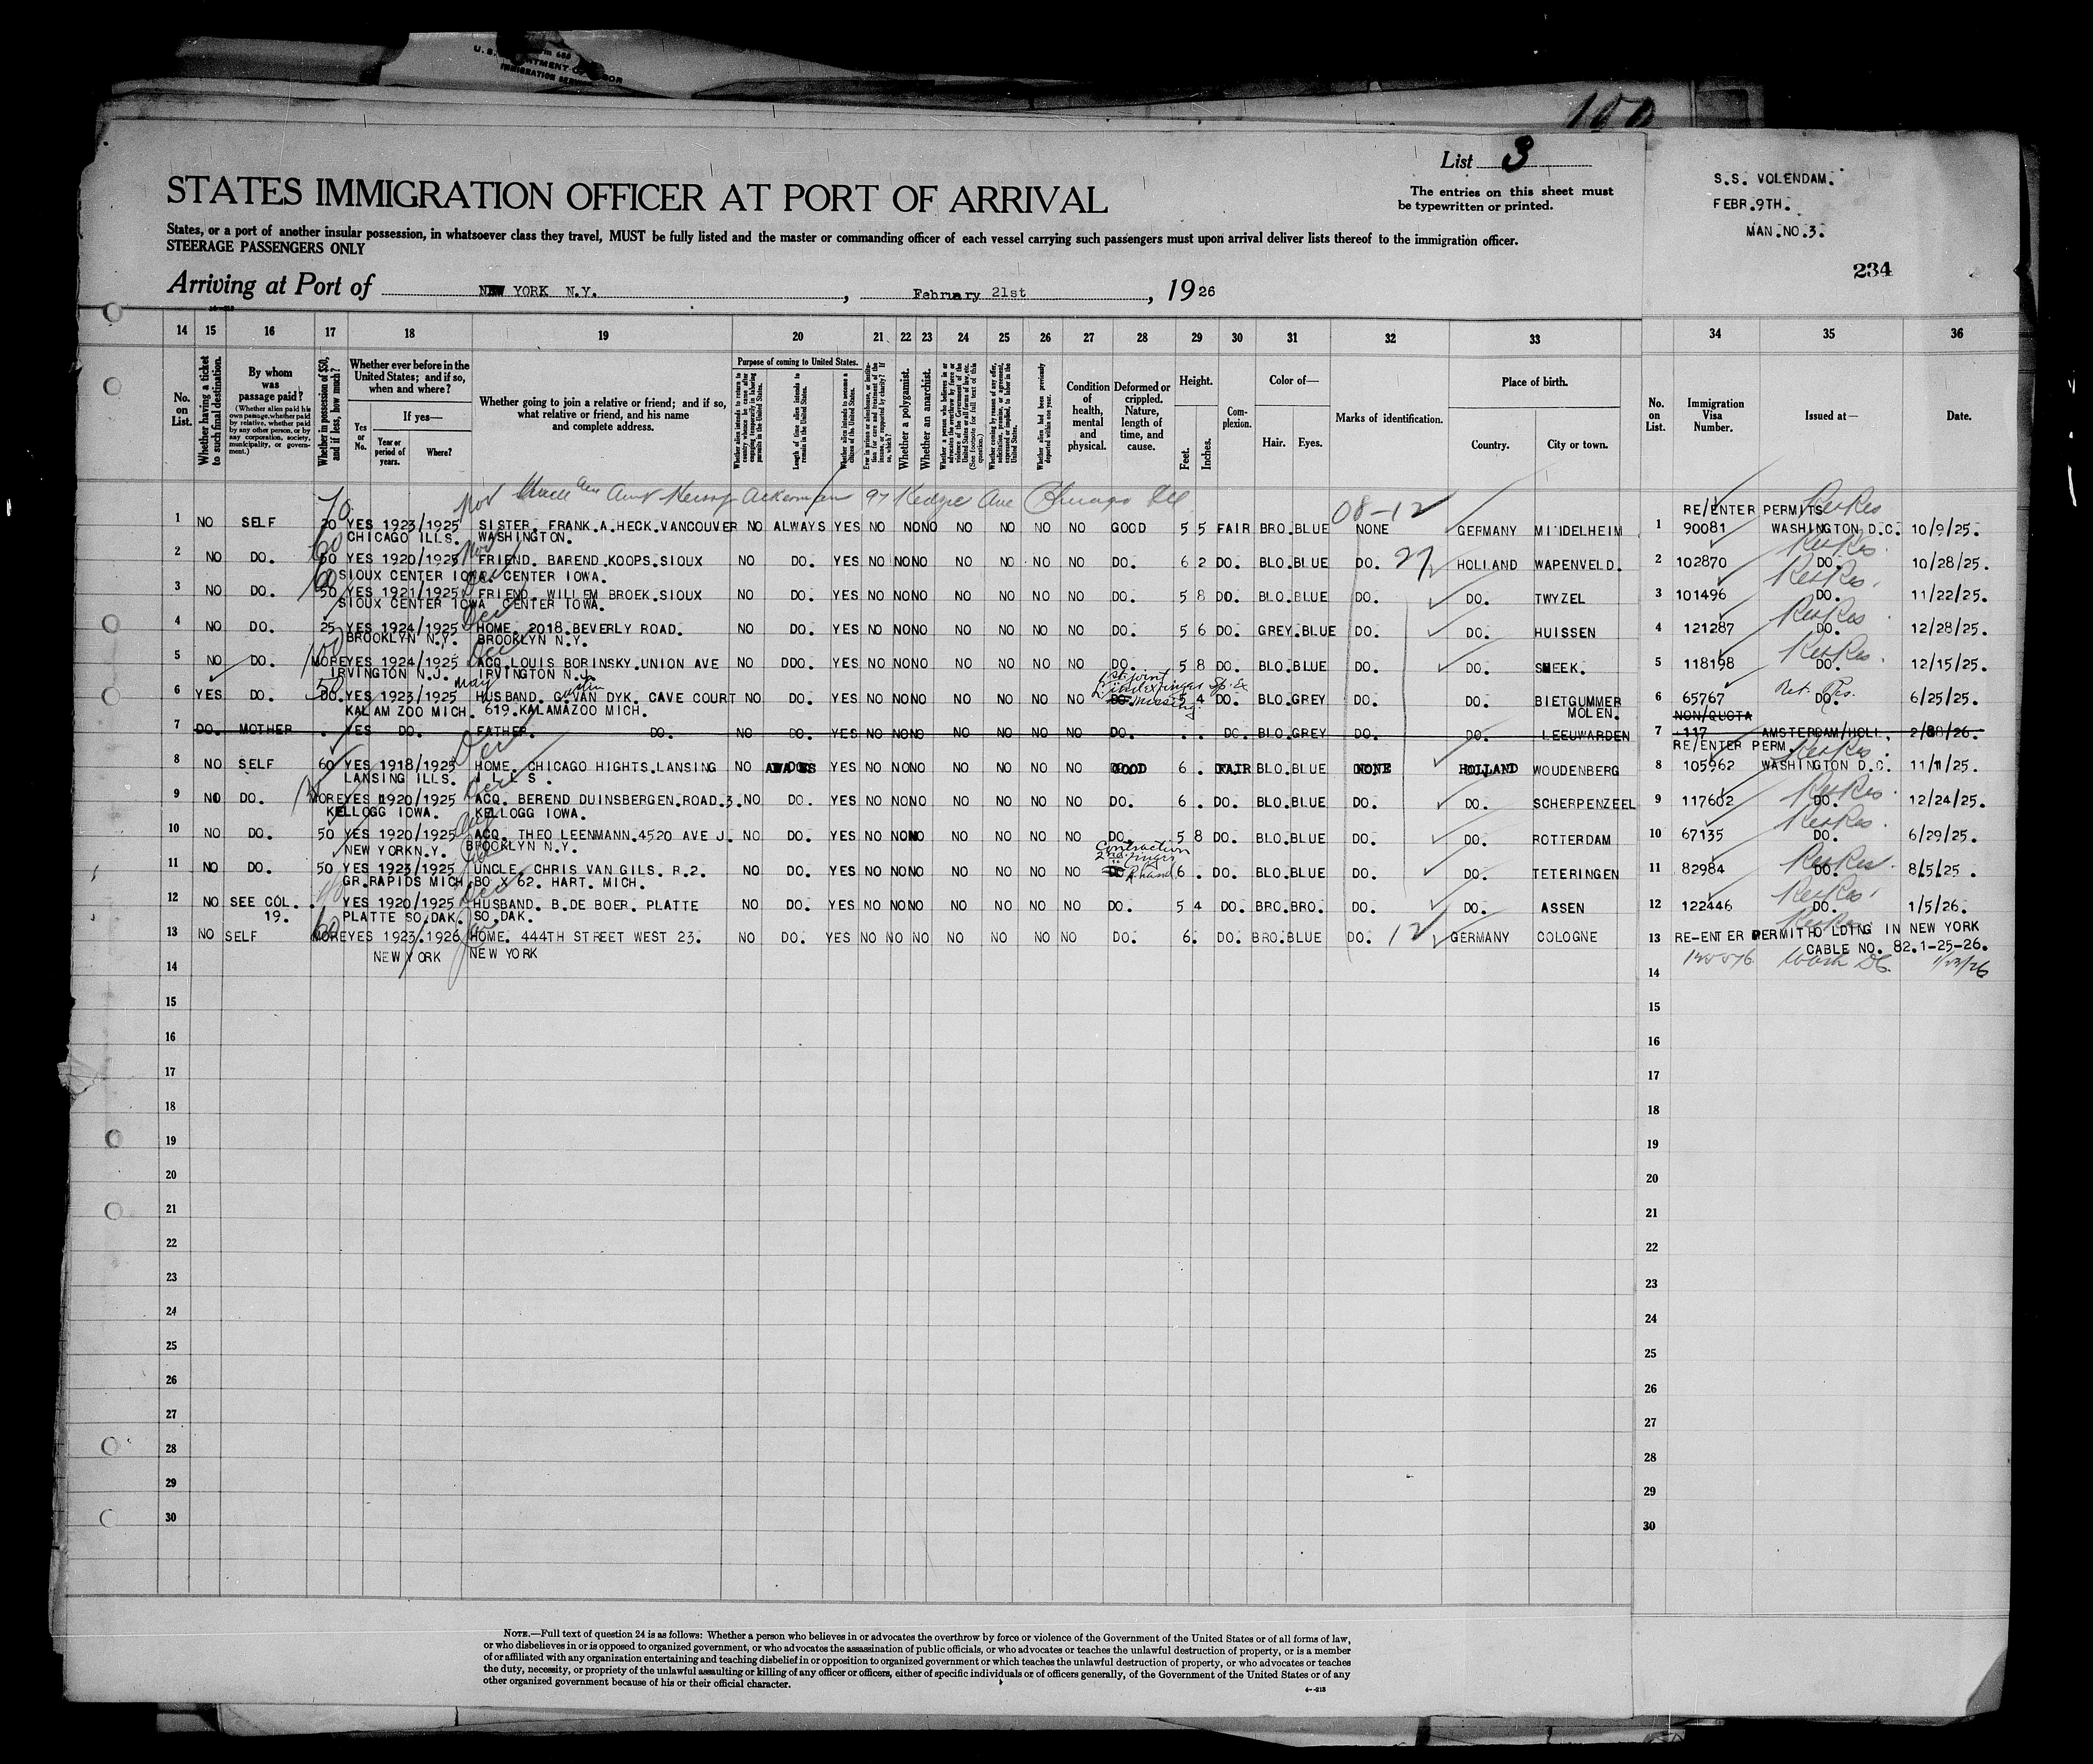 100
List 3
The entries on this sheet must
be typewritten or printed.
S.S. VOLENDAM.
FEBR.9TH.
MAN.NO.3.
234
STATES IMMIGRATION OFFICER AT PORT OF ARRIVAL
States, or a port of another insular possession, in whatsoever class they travel, MUST be fully listed and the master or commanding officer of each vessel carrying such passengers must upon arrival deliver lists thereof to the immigration officer.
STEERAGE PASSENGERS ONLY
Arriving at Port of NEW YORK N.Y., February 21st, 1926
14 15 16 17 18 19 20 21 22 23 24 25 26 27 28 29 30 31 32 33 34 35 36
No. on List.
Whether having a ticket to such final destination.
By whom was passage paid?
(Whether alien paid his own passage, whether paid by relative, whether paid by any other person, or by any corporation, society, municipality, or government.)
Whether in possession of $50, and if less, how much?
Whether ever before in the United States; and if so, when and where?
If yes—
Yes or No.
Year or period of years.
Where?
Whether going to join a relative or friend; and if so, what relative or friend, and his name and complete address.
Purpose of coming to United States.
Whether alien intends to return to country whence he came after engaging temporarily in laboring pursuits in the United States.
Length of time alien intends to remain in the United States.
Whether alien intends to become a citizen of the United States.
Whether a polygamist.
Whether an anarchist.
Condition of health, mental and physical.
Deformed or crippled. Nature, length of time, and cause.
Height.
Feet. Inches.
Complexion.
Color of—
Hair. Eyes.
Marks of identification.
Place of birth.
Country. City or town.
No. on List.
Immigration Visa Number.
Issued at—
Date.
Aunt Ackerman 97 Kedzie Ave Chicago Ill
08-12
RE/ENTER PERMITS
1 NO SELF 20 YES 1923/1925 SISTER. FRANK.A.HECK.VANCOUVER NO ALWAYS YES NO NO NO NO NO NO NO GOOD 5 5 FAIR BRO.BLUE NONE GERMANY MINDELHEIM 1 90081 WASHINGTON D.C. 10/9/25.
CHICAGO ILLS. WASHINGTON.
2 NO DO. 50 YES 1920/1925 FRIEND. BAREND.KOOPS.SIOUX NO DO. YES NO NO NO NO NO NO NO DO. 6 2 DO. BLO.BLUE DO. 27 HOLLAND WAPENVELD. 2 102870 DO. 10/28/25.
SIOUX CENTER IOWA. CENTER IOWA.
3 NO DO. 50 YES 1921/1925 FRIEND. WILLEM BROEK.SIOUX NO DO. YES NO NO NO NO NO NO NO DO. 5 8 DO. BLO.BLUE DO. DO. TWYZEL 3 101496 DO. 11/22/25.
SIOUX CENTER IOWA CENTER IOWA.
4 NO DO. 25 YES 1924/1925 HOME. 2018.BEVERLY ROAD. NO DO. YES NO NO NO NO NO NO NO DO. 5 6 DO. GREY.BLUE DO. DO. HUISSEN 4 121287 DO. 12/28/25.
BROOKLYN N.Y. BROOKLYN N.Y.
5 NO DO. MORE YES 1924/1925 ACQ.LOUIS BORINSKY.UNION AVE NO DDO. YES NO NO NO NO NO NO NO DO. 5 8 DO. BLO.BLUE DO. DO. SNEEK. 5 118198 DO. 12/15/25.
IRVINGTON N.J. IRVINGTON N.J.
May
6 YES DO. DO. YES 1923/1925 HUSBAND. G.VAN DYK. CAVE COURT NO DO. YES NO NO NO NO NO NO NO DO. missing 5 4 DO. BLO.GREY DO. DO. BIETGUMMER 6 65767 6/25/25.
KALAM ZOO MICH. 619.KALAMAZOO MICH. MOLEN. NON/QUOTA
7 DO. MOTHER . YES DO. FATHER. DO. NO DO. YES NO NO NO NO NO NO NO DO. . . DO. BLO.GREY DO. DO. LEEUWARDEN 7 117 AMSTERDAM/HOLL.
RE/ENTER PERM.
8 NO SELF 60 YES 1918/1925 HOME. CHICAGO HIGHTS.LANSING NO YES NO NO NO NO NO NO NO GOOD 6 . FAIR BLO.BLUE NONE HOLLAND WOUDENBERG 8 105962 WASHINGTON D.C. 11/11/25.
LANSING ILLS. ILLS.
9 NO DO. MORE YES 1920/1925 ACQ. BEREND DUINSBERGEN.ROAD.3. NO DO. YES NO NO NO NO NO NO NO DO. 6 . DO. BLO.BLUE DO. DO. SCHERPENZEEL 9 117602 DO. 12/24/25.
KELLOGG IOWA. KELLOGG IOWA.
10 NO DO. 50 YES 1920/1925 ACQ. THEO LEENMANN.4520 AVE J. NO DO. YES NO NO NO NO NO NO NO DO. 5 8 DO. BLO.BLUE DO. DO. ROTTERDAM 10 67135 DO. 6/29/25.
NEW YORKN.Y. BROOKLYN N.Y.
Contraction
11 NO DO. 50 YES 1923/1925 UNCLE. CHRIS VAN GILS. R.2. NO DO. YES NO NO NO NO NO NO NO R hand 6 . DO. BLO.BLUE DO. DO. TETERINGEN 11 82984 DO. 8/5/25.
GR.RAPIDS MICH. BO X 62. HART. MICH.
12 NO SEE COL. YES 1920/1925 HUSBAND. B.DE BOER. PLATTE NO DO. YES NO NO NO NO NO NO NO DO. 5 4 DO. BRO.BRO. DO. DO. ASSEN 12 122446 DO. 1/5/26.
19. PLATTE SO.DAK. SO.DAK.
13 NO SELF MORE YES 1923.1926 HOME. 444TH STREET WEST 23. NO DO. YES NO NO NO NO NO NO NO DO. 6. DO. BRO.BLUE DO. 12 GERMANY COLOGNE 13 RE-ENTER PERMIT HOLDING IN NEW YORK
NEW YORK NEW YORK CABLE NO. 82.1-25-26.
14 14 Wash DC.
15 15
16 16
17 17
18 18
19 19
20 20
21 21
22 22
23 23
24 24
25 25
26 26
27 27
28 28
29 29
30 30
NOTE.—Full text of question 24 is as follows: Whether a person who believes in or advocates the overthrow by force or violence of the Government of the United States or of all forms of law,
or who disbelieves in or is opposed to organized government, or who advocates the assassination of public officials, or who advocates or teaches the unlawful destruction of property, or is a member
of or affiliated with any organization entertaining and teaching disbelief in or opposition to organized government or which teaches the unlawful destruction of property, or who advocates or teaches
the duty, necessity, or propriety of the unlawful assaulting or killing of any officer or officers, either of specific individuals or of officers generally, of the Government of the United States or of any
other organized government because of his or their official character.